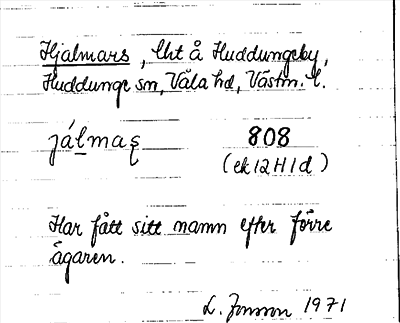 Hjalmars, lht å Huddungeby,
Huddunge sn, Våla hd, Västm. l.
jálmaʂ 808
(ek 12 H 1 d)
Har fått sitt namn efter förre
ägaren.
L. Jonsson 1971